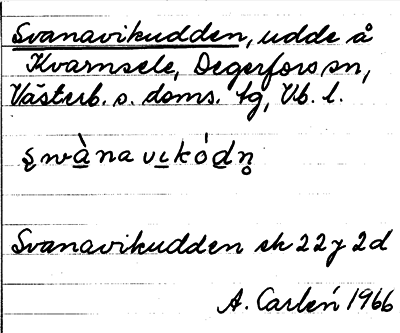 Svanavikudden, udde å
Kvarnsele, Degerfors sn,
Västerb. s. doms. tg, Vb. l.
s̨wànavi̱kód̲n̥
Svanavikudden ek 22 J 2d
A. Carlén 1966